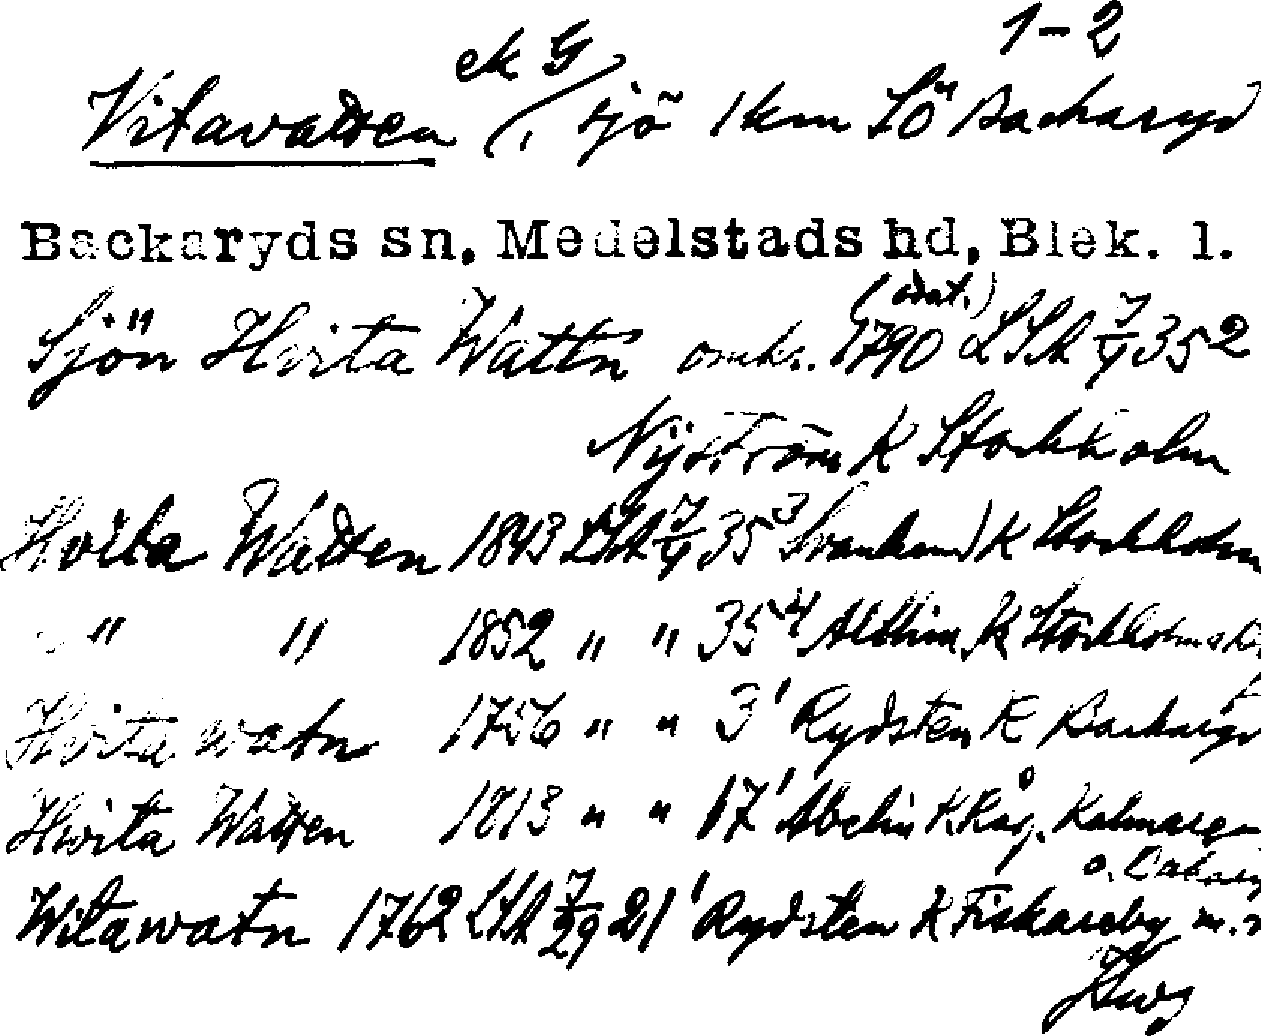 1-2
ek G
Vitavatten sjö 1 km SÖ Backaryd
Backaryds sn, Medelstads hd, Blek. l.
(odat.)
Sjön Hvita Wattn omkr. 1790 LSA 7/4 35²
Nyström K Stockholm
Hvita Watten 1843 LSA 7/4 35³ Svanlund K Stockholm
" " 1852 " " 35⁴ Althin K Stockholm
Hvita watn 1756 " " 3¹ Rydsten K Backaryd
Hwita Watten 1813 " " 17¹ Abelin K Råg. Kalmaren
o.
Witawatn 1762 LSA 7/29 21¹ Rydsten K Fiskareby